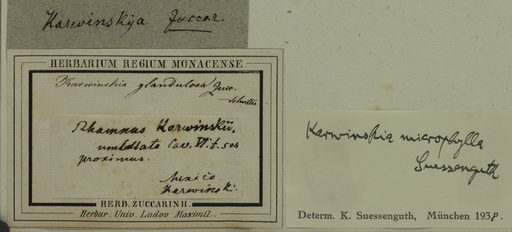 Karwinskia Zuccar.
HERBARIUM REGIUM MONACENSE.
Karwinskia glandulosa Zucc.
Rhamnus Karwinskii,
umbellato Cav. VI. t. 504
proximus.
Mexico
Karwinski.
HERB. ZUCCARINII.
Herbar. Univ. Ludov Maximil.
Karwinskia microphylla
Suessenguth
Determ. K. Suessenguth, München 1938.